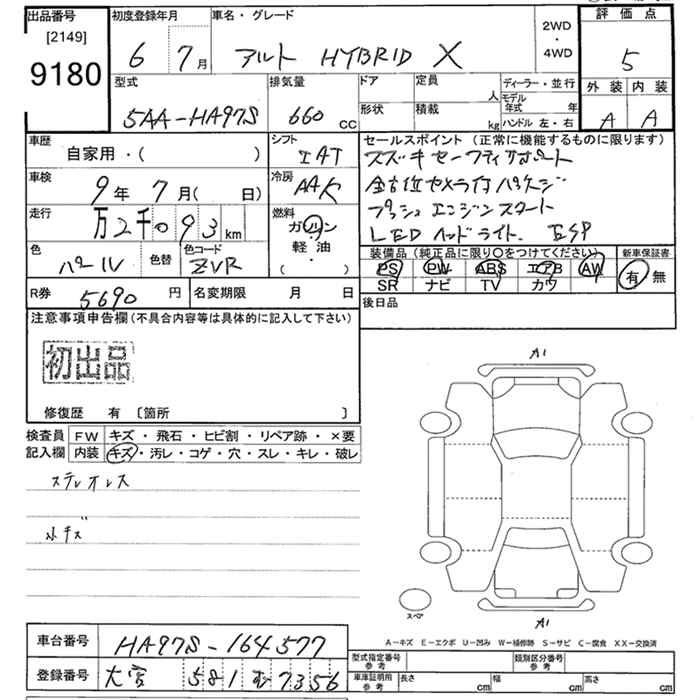 出品番号 初度登録年月 車名・グレード 2WD・4WD 評価点
[2149]
9180 6 7月 アルト HYBRID X 5
型式 排気量 ドア 定員 人 ディーラー・並行 外装 内装
5AA-HA97S 660 CC 形状 積載 kg モデル年式 年 ハンドル 左・右 A A
車歴 自家用・( ) シフト IAT
セールスポイント (正常に機能するものに限ります)
車検 9年 7月( 日) 冷房 AAC
スズキセーフティサポート
全方位カメラ付パッケージ
走行 万2千093km 燃料 ガソリン・軽油・( )
プッシュエンジンスタート
LEDヘッドライト. ESP
色 パール 色替 色コード ZVR
装備品 (純正品に限り○をつけてください) 新車保証書
PS PW ABS エアB AW 有 無
SR ナビ TV カワ
R券 5690円 名変期限 月 日
後日品
注意事項申告欄(不具合内容等は具体的に記入して下さい)
初出品
修復歴 有 〔箇所 〕
A1
検査員 FW キズ・飛石・ヒビ割・リペア跡・×要
記入欄 内装 キズ・汚レ・コゲ・穴・スレ・キレ・破レ
ステレオレス
小キズ
スペア
A1
A-キズ E-エクボ U-凹み W-補修跡 S-サビ C-腐食 XX-交換済
車台番号 HA97S-164577
登録番号 大宮 581 7356
型式指定番号 参考 類別区分番号 参考
車庫証明用 参考 長さ cm 幅 cm 高さ cm